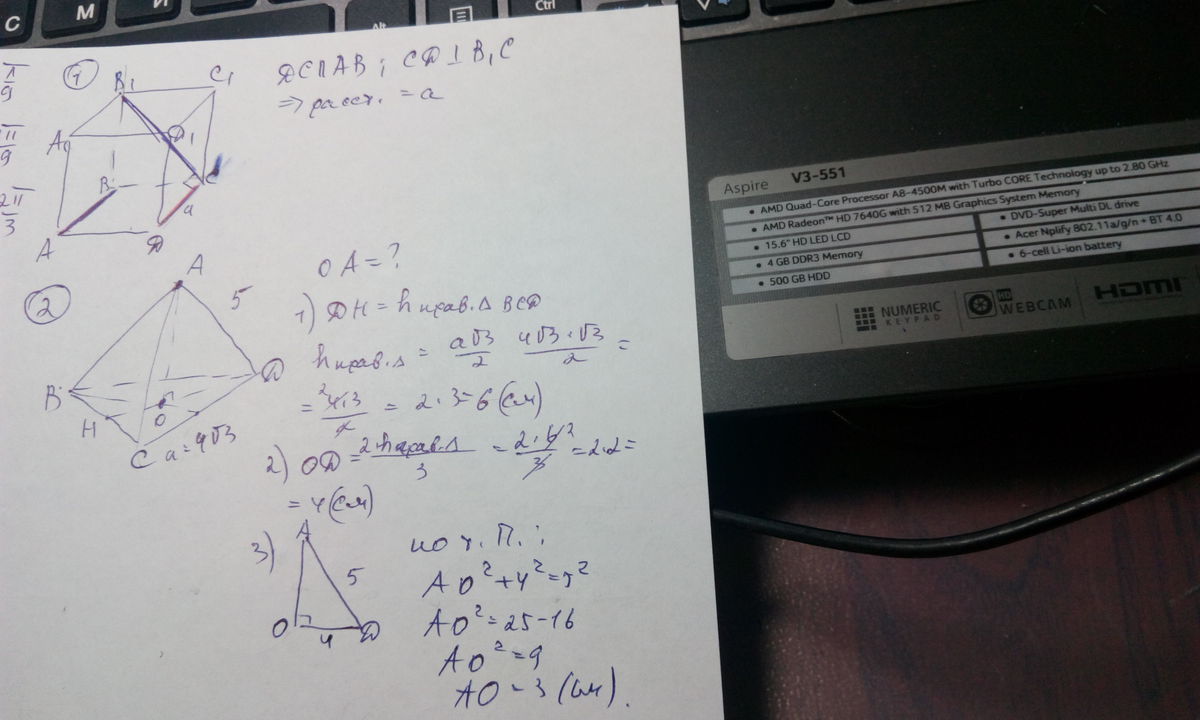 С
М
Alt
Ctrl
V
π/9
π/9
2π/3
①
B₁
C₁
A₁
D₁
B
C
a
A
D
DC ∥ AB ; CD ⊥ B₁C
⇒ расст. = a
②
A
5
B
D
O
H
C a = 4√3
OA = ?
1) DH = h прав. Δ BCD
h прав. Δ = a√3/2 4√3·√3/2 =
= 4·3/2 = 2·3 = 6 (см)
2) OD = 2·h прав. Δ/3 = 2·6/3 = 2·2 =
= 4 (см)
3) A
5
O
4
D
по т. П. :
AO² + 4² = 5²
AO² = 25 - 16
AO² = 9
AO = 3 (см).
Aspire V3-551
• AMD Quad-Core Processor A8-4500M with Turbo CORE Technology up to 2.80 GHz
• AMD Radeon™ HD 7640G with 512 MB Graphics System Memory
• 15.6" HD LED LCD
• 4 GB DDR3 Memory
• 500 GB HDD
• DVD-Super Multi DL drive
• Acer Nplify 802.11a/g/n + BT 4.0
• 6-cell Li-ion battery
NUMERIC
KEYPAD
HD
WEBCAM
HDMI